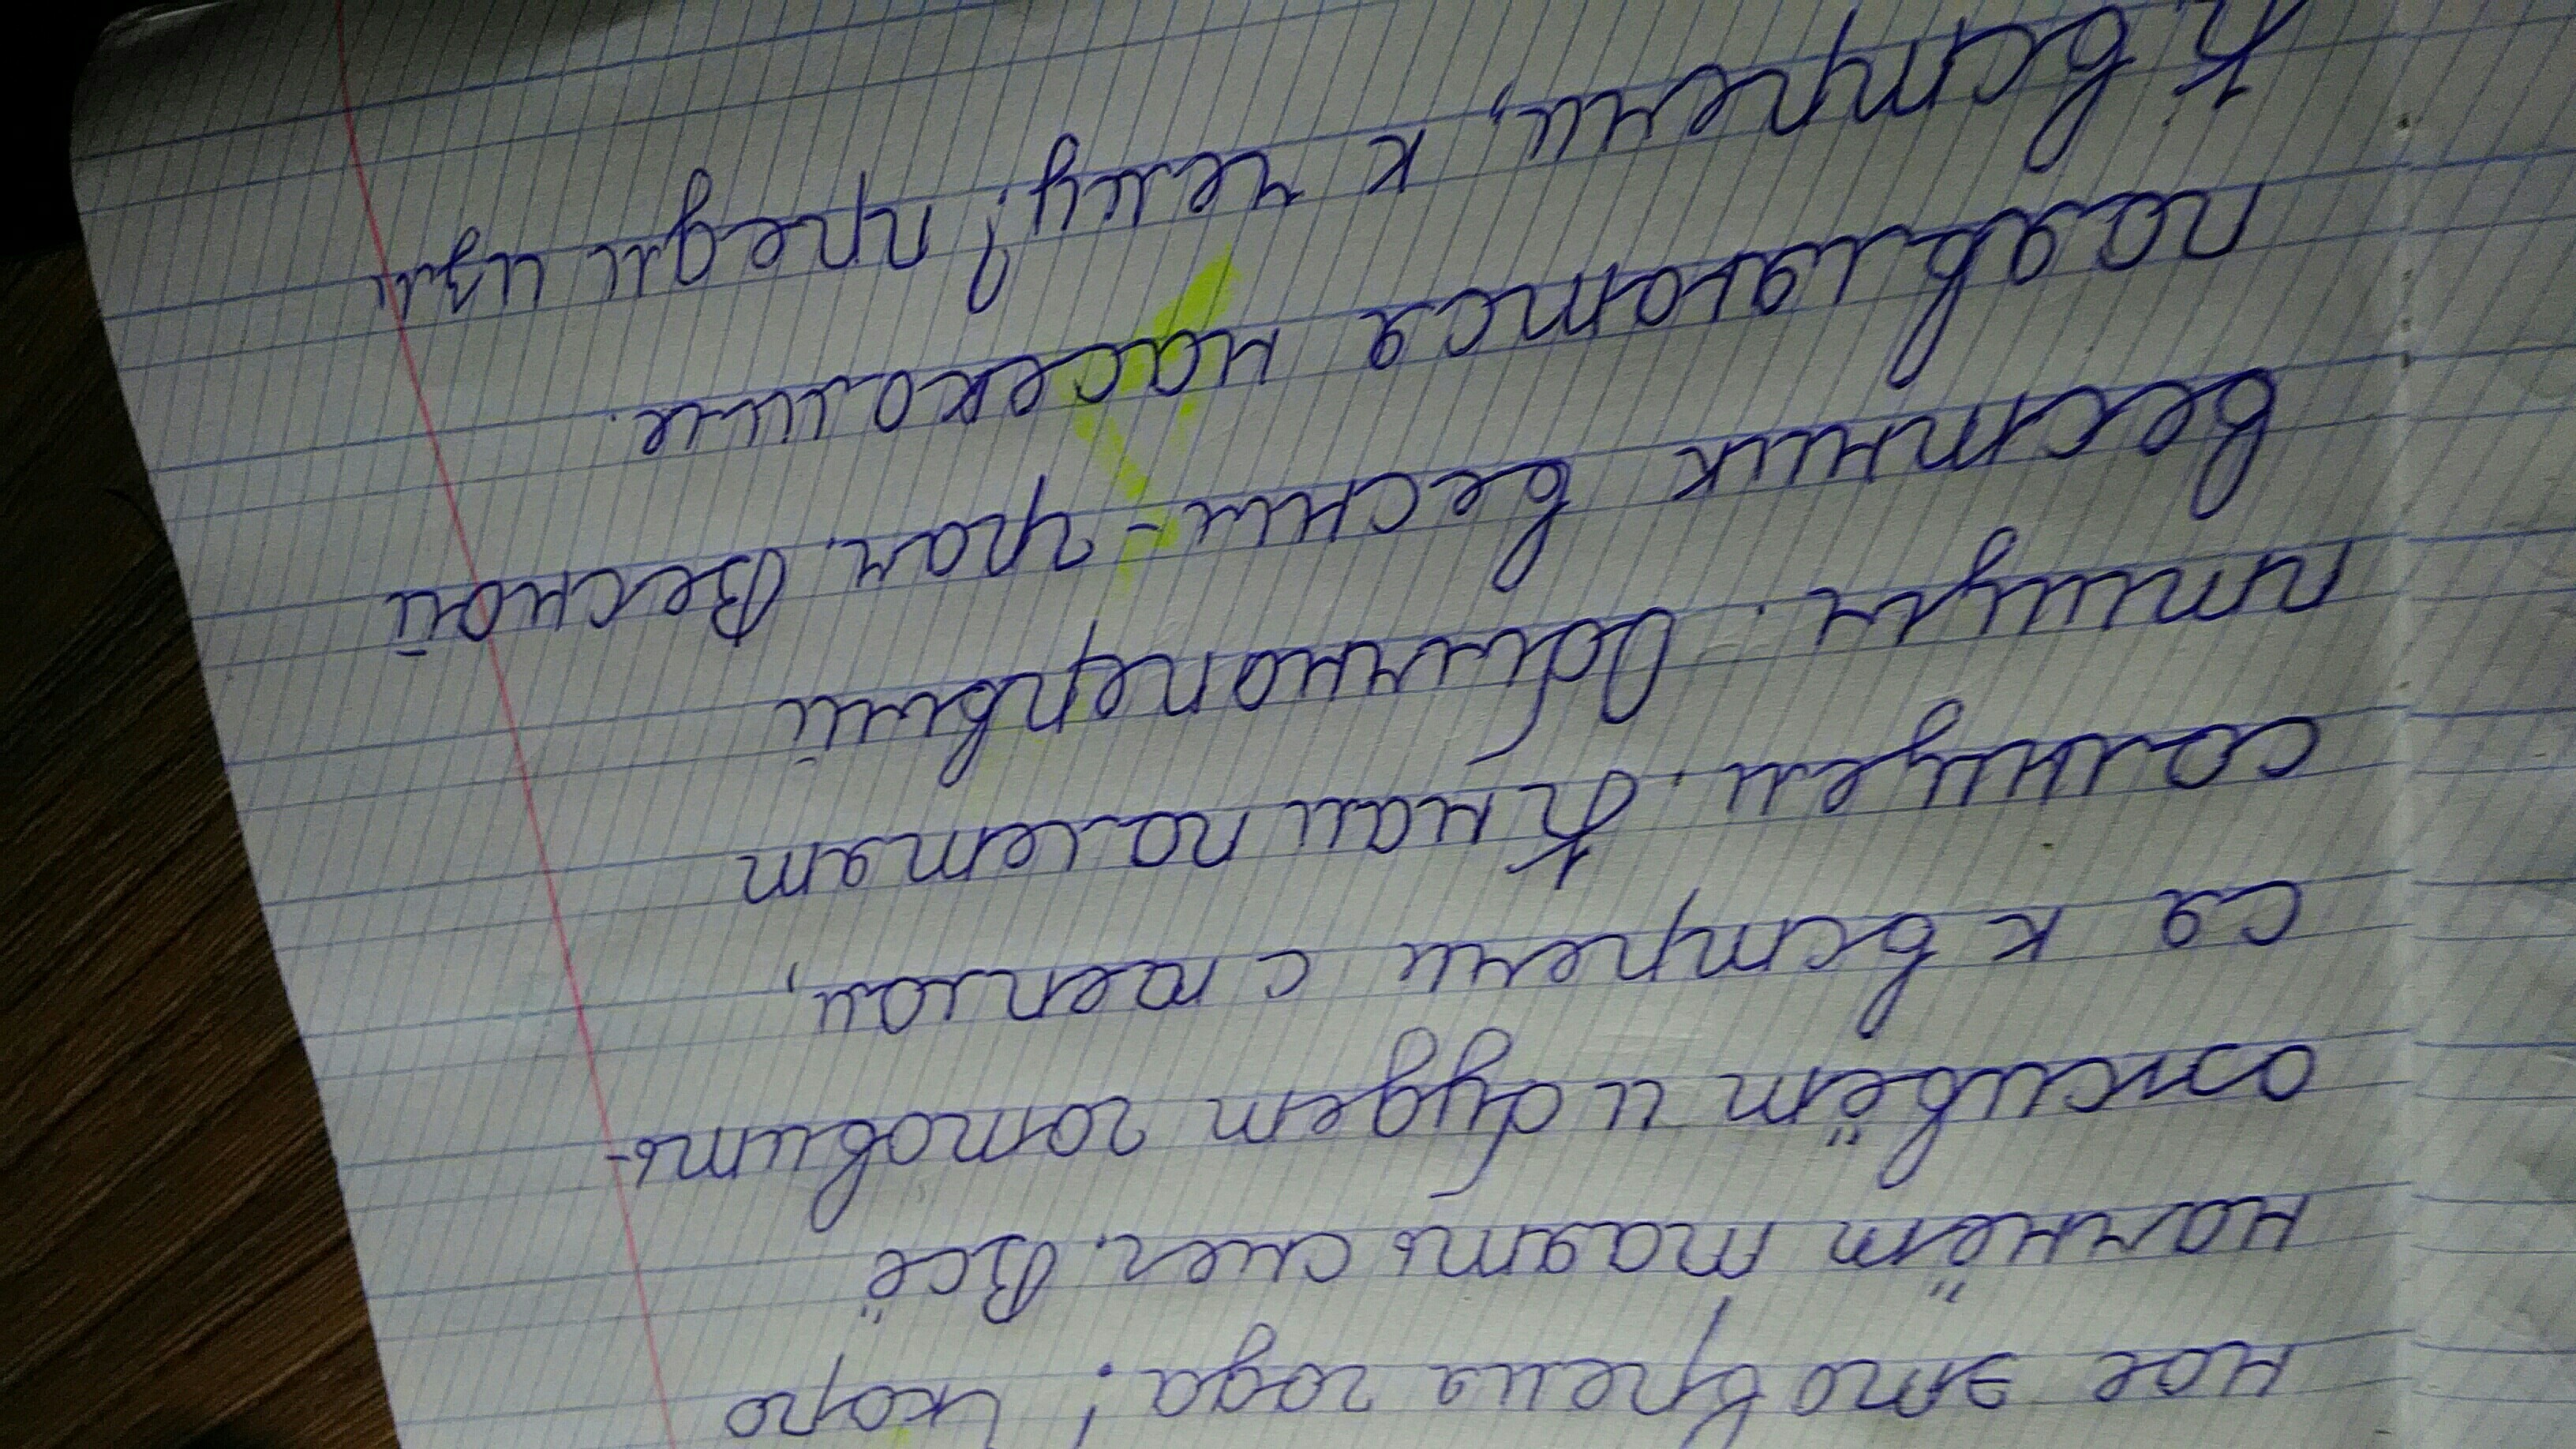 ное это время года! Скоро
начнёт таять снег. Всё
оживёт и будет готовить-
ся к встречи с теплом,
солнцем. К нам палетят
птицы. Обычнопервый
вестник весны - грач. Весной
паявляются насекомые.
К встречи, к чему? предл и изм